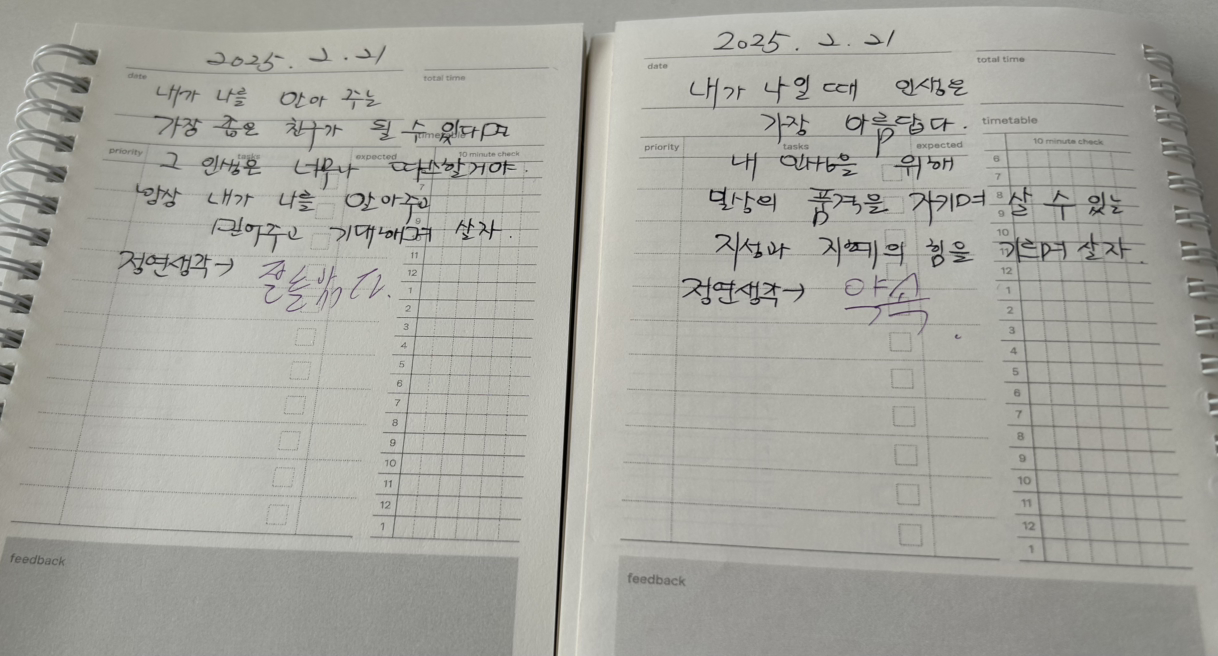 2025. 2. 21
date
total time
내가 나를 안아 주는
가장 좋은 친구가 될 수 있다면
timetable
priority
tasks
expected
10 minute check
그 인생은 너무나 따스할거야.
항상 내가 나를 안아주고
믿어주고 기대해며 살자.
정연생각→
7
9
11
12
1
2
3
4
5
6
7
8
9
10
11
12
1
feedback
2025. 2. 21
date
total time
내가 나일 때 인생은
가장 아름답다.
timetable
priority
tasks
expected
10 minute check
내 인생을 위해
일상의 품격을 지키며 살 수 있는
지성과 지혜의 힘을 기르며 살자.
정연생각→ 약속
6
7
8
9
10
11
12
1
2
3
4
5
6
7
8
9
10
11
12
1
feedback